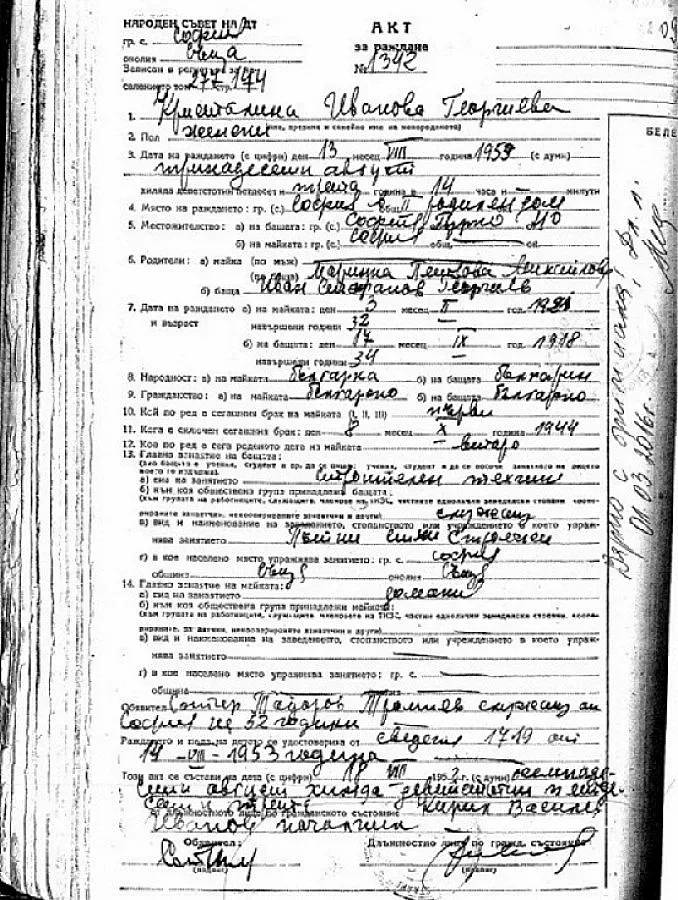 НАРОДЕН СЪВЕТ НА ДТ
гр. с. София
околия Същa
Записан в регистъра за
селението том 277 стр. 144
АКТ
за раждане
№ 1342
1. Кристалина Иванова Георгиева
(име, презиме и фамилно име на новороденото)
2. Пол женски
3. Дата на раждането (с цифри) ден 13 месец VIII година 1953 (с думи)
тринадесети август
хиляда деветстотин петдесет и трета година в 14 часа и — минути
4. Място на раждането: гр. (с.) София общ. II родилен дом
5. Местожителство: а) на бащата: гр. (с.) София
б) на майката: гр. (с.) София общ. ок.
6. Родители: а) майка (по мъж)
(по баща) Марийка Пенкова
б) баща Иван Стефанов Георгиев
7. Дата на раждането а) на майката: ден 3 месец II год.
и възраст навършени години 32 —
б) на бащата: ден 17 месец IX год. 1918
навършени години 34 —
8. Народност: а) на майката българка б) на бащата българин
9. Гражданство: а) на майката българско б) на бащата българско
10. Кой по ред е сегашния брак на майката (I, II, III) първи
11. Кога е сключен сегашния брак: ден 8 месец X година 1944
12. Кое по ред е сега роденото дете на майката — второ
13. Главно занаятие на бащата:
а) вид на занаятието строителен техник
б) към коя обществена група принадлежи бащата.
служещ
в) вид и наименование на заведението, стопанството или учреждението в което упраж-
нява занятието
г) в кое населено място упражнява занятието: гр. с. София
община Същa околия Същa
14. Главно занаятие на майката:
а) вид на занаятието домакиня
б) към коя обществена група принадлежи майката:
в) вид и наименование на заведението, стопанството или учреждението в което упраж-
нява занятието
г) в кое населено място упражнява занятието: гр. с.
община
Обявител Тодоров служещ от
София на 52 години
Раждането и пола на детето се удостоверява от сведение 1719 от
14 - VIII - 1953 година
Този акт се състави на дата (с цифри) 18 VIII 195 (с думи) осемнаде-
сети август хиляда деветстотин петде-
сет и трета
длъжностното лице по гражданското състояние Кирил Василев
Иванов началник
Обявител:
(подпис)
Длъжностно лице по гражд. състояние
(подпис)
БЕЛЕ
Вярно с оригинала!
01.03.2016г.